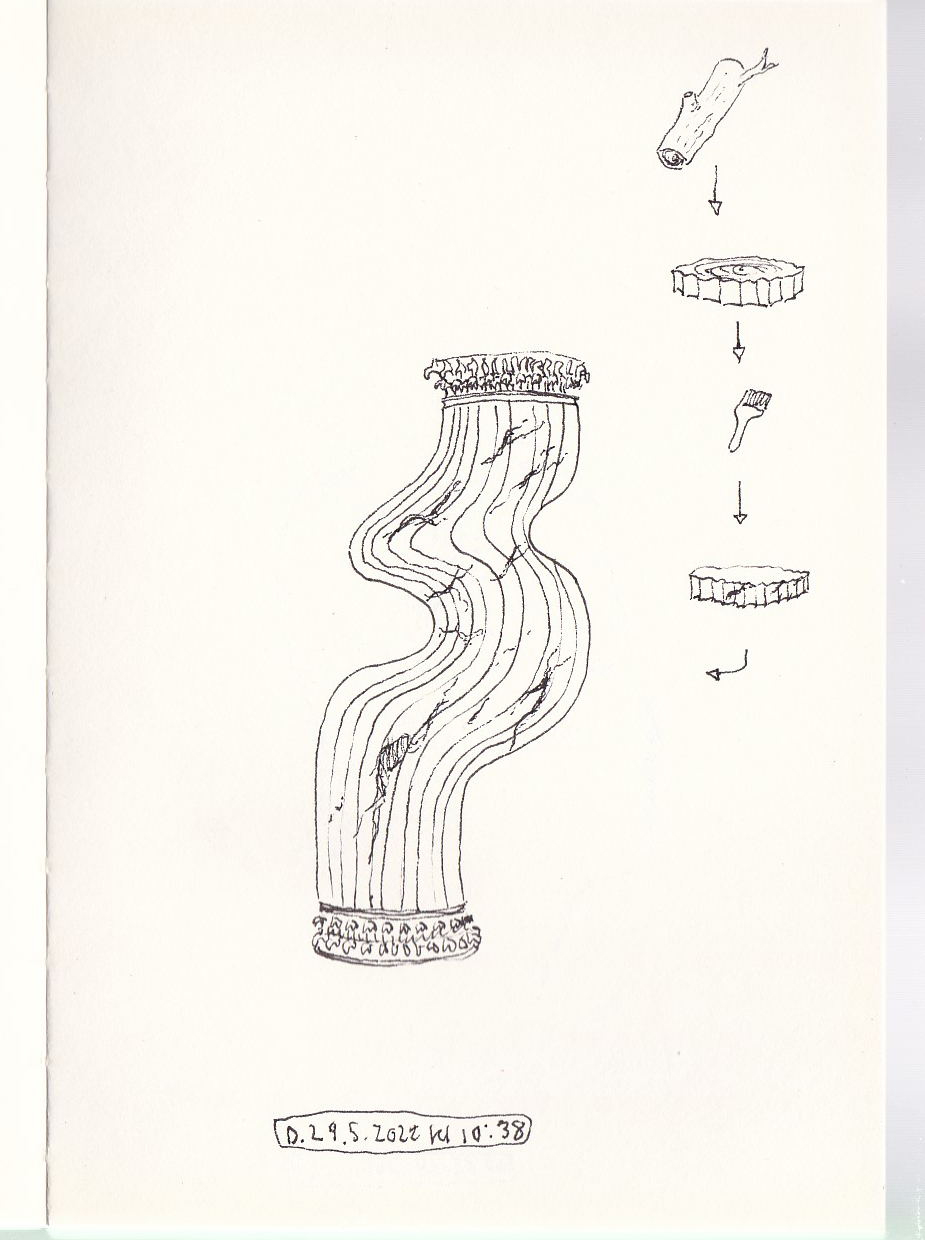 D. 29.5.2022 kl 10:38